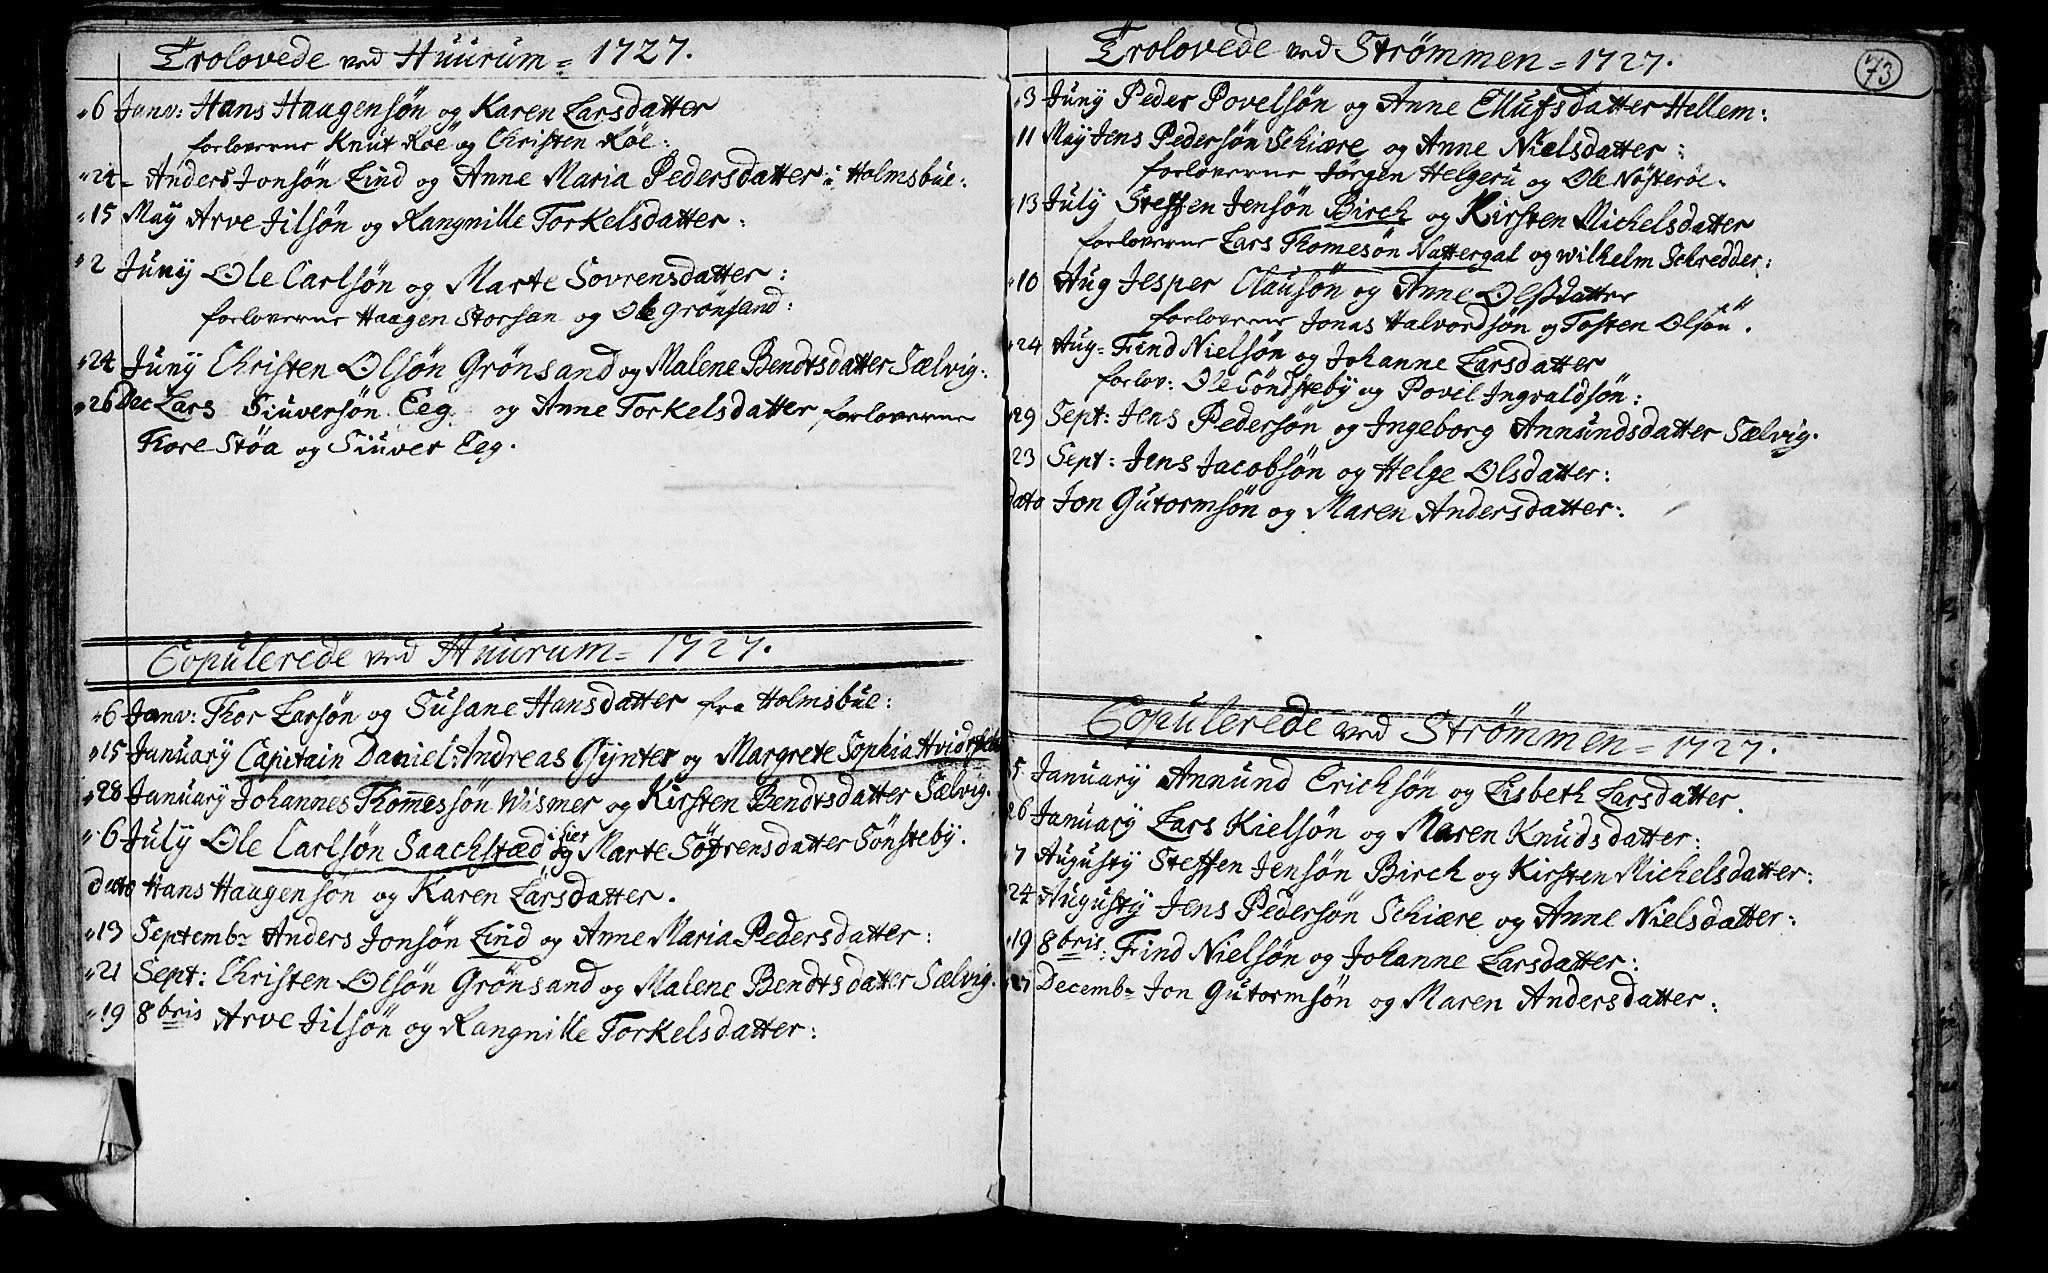 Trolovede ved Huurum = 1727.
6 Janv: Hans Haagensøn og Karen Larsdatter
forloverne Knut Röe og Christen Röe:
24 - Anders Jonsøn Lind og Anne Maria Pedersdatter i Holmsbue:
15 May Arve Jilsøn og Rangnille Torkelsdatter:
2 Juny Ole Carlsøn og Marte Sovrensdatter:
forloverne Haagen Storsan og Ole Grönsand:
24 Juny Christen Olsøn Grönsand og Malene Bendtsdatter Sælvig:
26 Dec Lars Siuversøn Eeg og Anne Torkelsdatter forloverne
Tore Støa og Siuver Eeg.
Copulerede ved Huurum = 1727.
6 Janv: Thor Larsøn og Susane Hansdatter fra Holmsbue:
15 January Capitain Daniel Andreas Gynter og Margrete Sophia
28 January Johannes Thommessøn Wismer og Kirsten Bendtsdatter Sælvig.
6 July Ole Carlsøn Saachstæd i Lier og Marte Söfrensdatter Sönsteby.
Dato Hans Haagensøn og Karen Larsdatter.
13 Septembr Anders Jonsøn Lind og Anne Maria Pedersdatter:
21 Sept: Christen Olsøn Grönsand og Malene Bendtsdatter Sælvig.
19 8bris Arve Jilsøn og Rangnille Torkelsdatter:
Trolovede ved Strömmen = 1727.
73
3 Juny Peder Povelsøn og Anne Ellufsdatter Hellem:
11 May Jens Pedersøn Schiære og Anne Nielsdatter:
forloverne Jørgen Helgeru og Ole Nösteröe.
13 July Steffen Jensøn Birch og Kirsten Michelsdatter
forloverne Lars Thomesøn Nattergal og Wilhelm Schredder:
10 Aug Jesper Clausøn og Anne Olsdatter
forloverne Jonas Halvordsøn og Tosten Olsøn.
24 Aug= Find Nielsøn og Johanne Larsdatter
forlov: Ole Söndsteby og Povil Ingvaldsön:
29 Sept: Jens Pedersøn og Ingeborg Annundsdatter Sælvig.
23 Sept: Jens Jacobsøn og Helge Olsdatter:
dato Jon Gutormsøn og Maren Andersdatter:
Copulerede ved Strömmen = 1727.
5 January Annund Erichsøn og Lisbeth Larsdatter.
26 January Lars Kielsøn og Maren Knudsdatter:
7 Augusty Steffen Jensøn Birch og Kirsten Michelsdatter:
24 Augusty Jens Pedersøn Schiære og Anne Nielsdatter:
19 8bris: Find Nielsøn og Johanne Larsdatter:
27 Decembr Jon Gutormsøn og Maren Andersdatter: